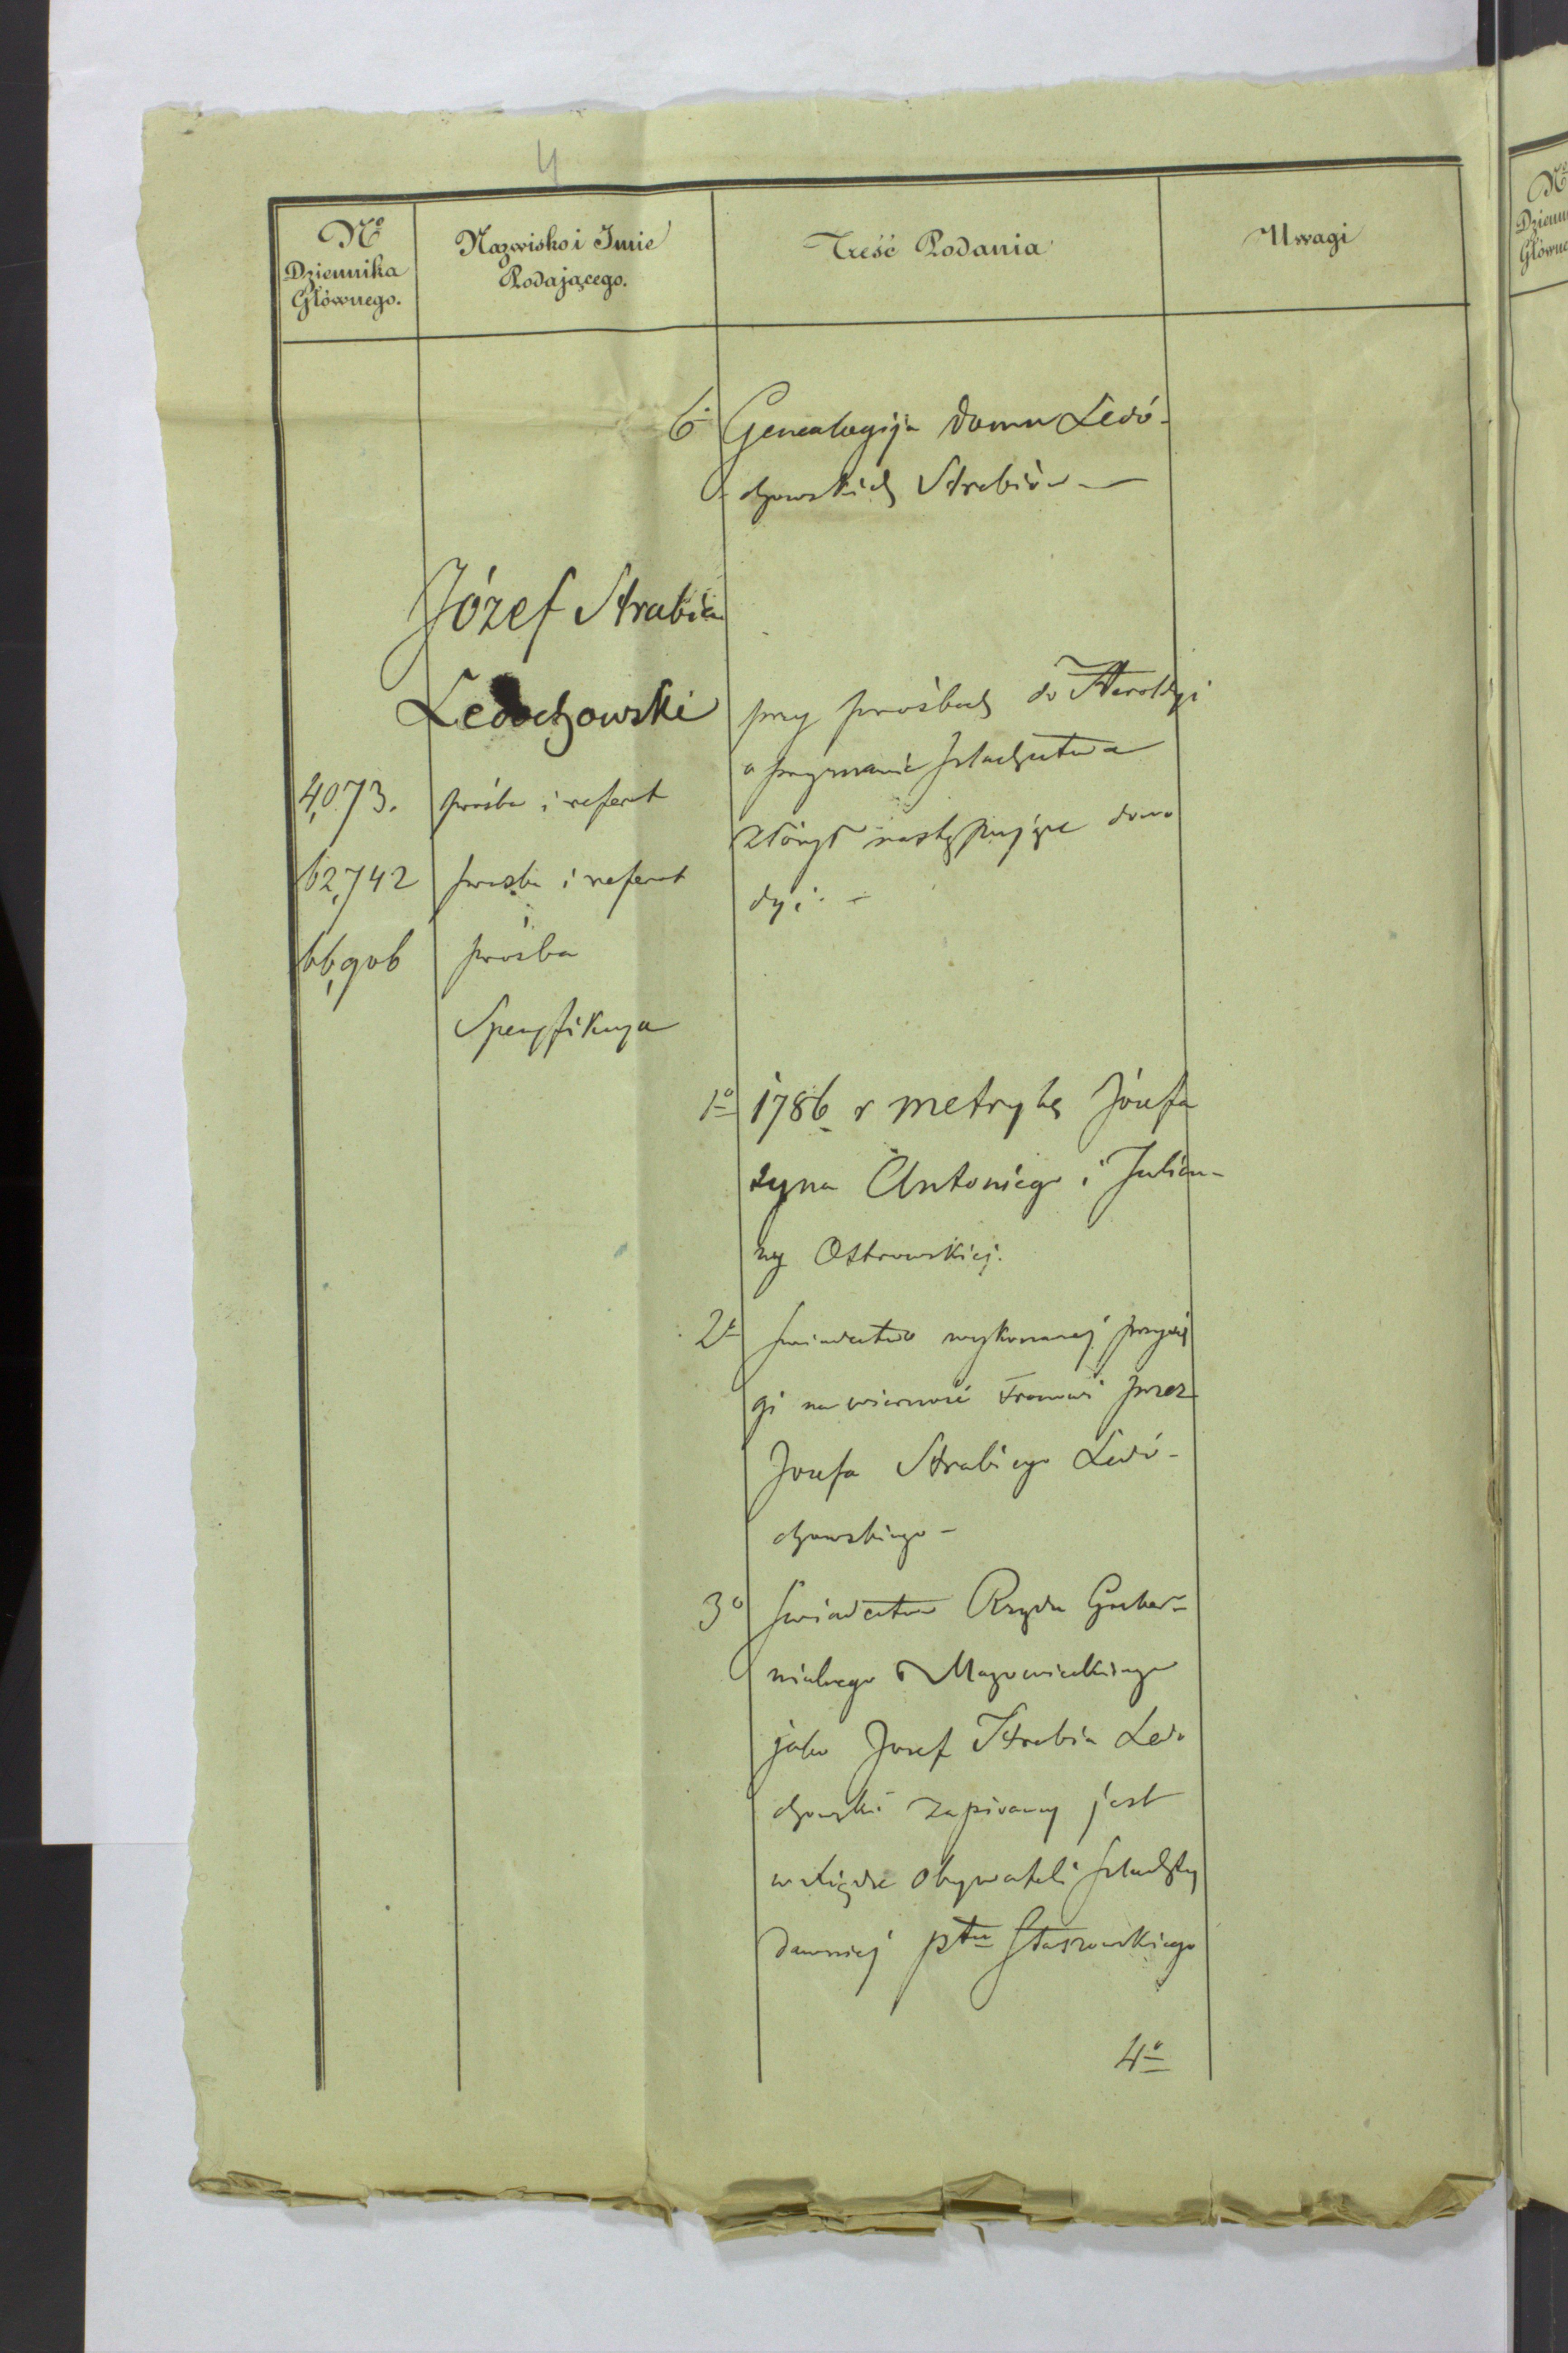 4
Nº Dziennika Głównego.
Nazwisko i Imie Podającego.
Treść Podania
Uwagi
6º Genealogija domu Ledó-
chowskich Hrabiów —
Józef Hrabia
Ledochowski
4,073. prośba i referat
62,742 prośba i referat
66,906 prośba
Specyfikacya
przy prośbach do Heroldyi
o przyznanie szlachectwa
złożył następujące dowo
dy: -
1º 1786 r metrykę Józefa
syna Antoniego i Julian-
ny Ostrowskiej.
2º świadectwo wykonanej przysię
gi na wierność Tronowi przez
Jozefa Hrabiego Ledó-
chowskiego -
3º świadectwo Rządu Guber-
nialnego Mazowieckiego
jako Jozef Hrabia Ledo
chowski zapisany jest
w księdze obywateli szlachty
dawniej ptu Staszowskiego
4º
Nº
Dzienn
Główne